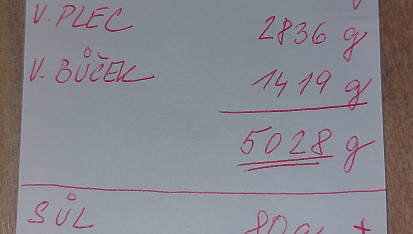 V. PLEC 2836 g
V. BŮČEK 1419 g
5028 g
SŮL 80g +